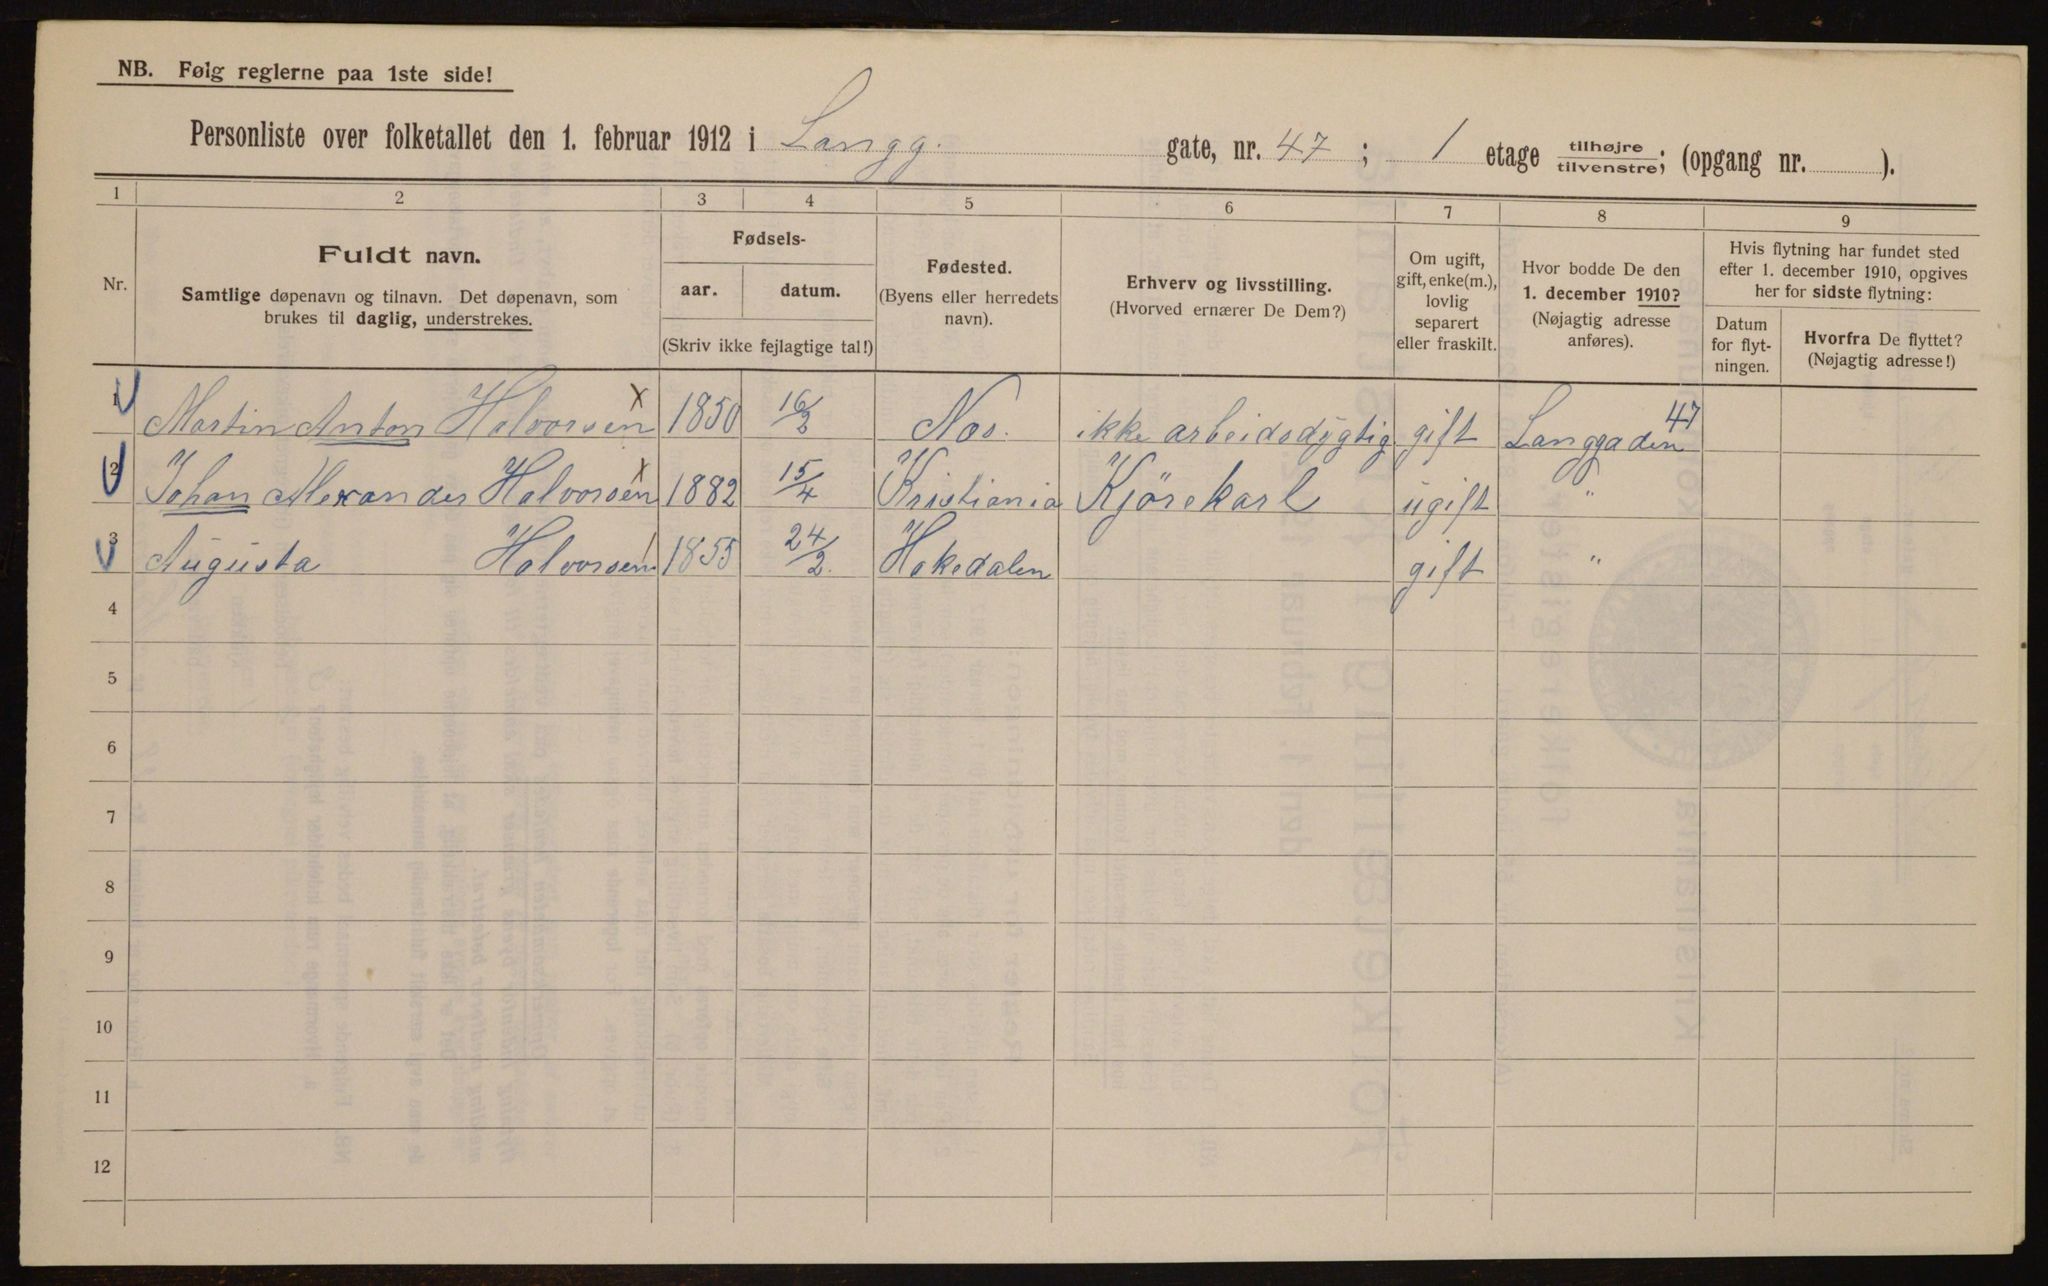 NB. Følg reglerne paa 1ste side!
Personliste over folketallet den 1. februar 1912 i Langg. gate, nr. 47 ; 1 etage tilhøjre/tilvenstre; (opgang nr. ).
1 2 3 4 5 6 7 8 9
Nr.
Fuldt navn.
Samtlige døpenavn og tilnavn. Det døpenavn, som
brukes til daglig, understrekes.
Fødsels-
aar. datum.
(Skriv ikke fejlagtige tal!)
Fødested.
(Byens eller herredets
navn).
Erhverv og livsstilling.
(Hvorved ernærer De Dem?)
Om ugift,
gift, enke(m.),
lovlig
separert
eller fraskilt.
Hvor bodde De den
1. december 1910?
(Nøjagtig adresse
anføres).
Hvis flytning har fundet sted
efter 1. december 1910, opgives
her for sidste flytning:
Datum
for flyt-
ningen.
Hvorfra De flyttet?
(Nøjagtig adresse!)
1 Martin Anton Halvorsen x 1850 16/2 Nes. ikke arbeidsdygtig gift Langgaden 47
2 Johan Alexander Halvorsen x 1882 15/4 Kristiania Kjörekarl ugift "
3 Augusta Halvorsen 1855 24/2. Hakedalen gift "
4
5
6
7
8
9
10
11
12